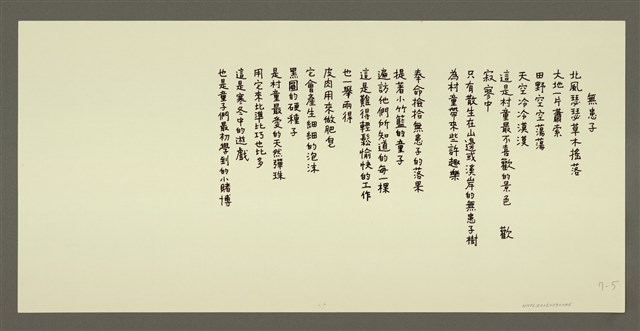 無患子
北風瑟瑟草木搖落
大地一片蕭索
田野空空蕩蕩
天空冷冷漠漠
這是村童最不喜歡的景色 歡
寂寥中
只有散生在山邊或溪岸的無患子樹
為村童帶來些許趣樂
奉命撿拾無患子的落果
提著小竹籃的童子
遍訪他們所知道的每一棵
這是難得輕鬆愉快的工作
也一舉兩得
皮肉用來做肥皂
它會產生細細的泡沫
黑圓的硬種子
是村童最愛的天然彈珠
用它來比準比巧也比多
這是寒冬中的遊戲
也是童子們最初學到的小賭博
7-5